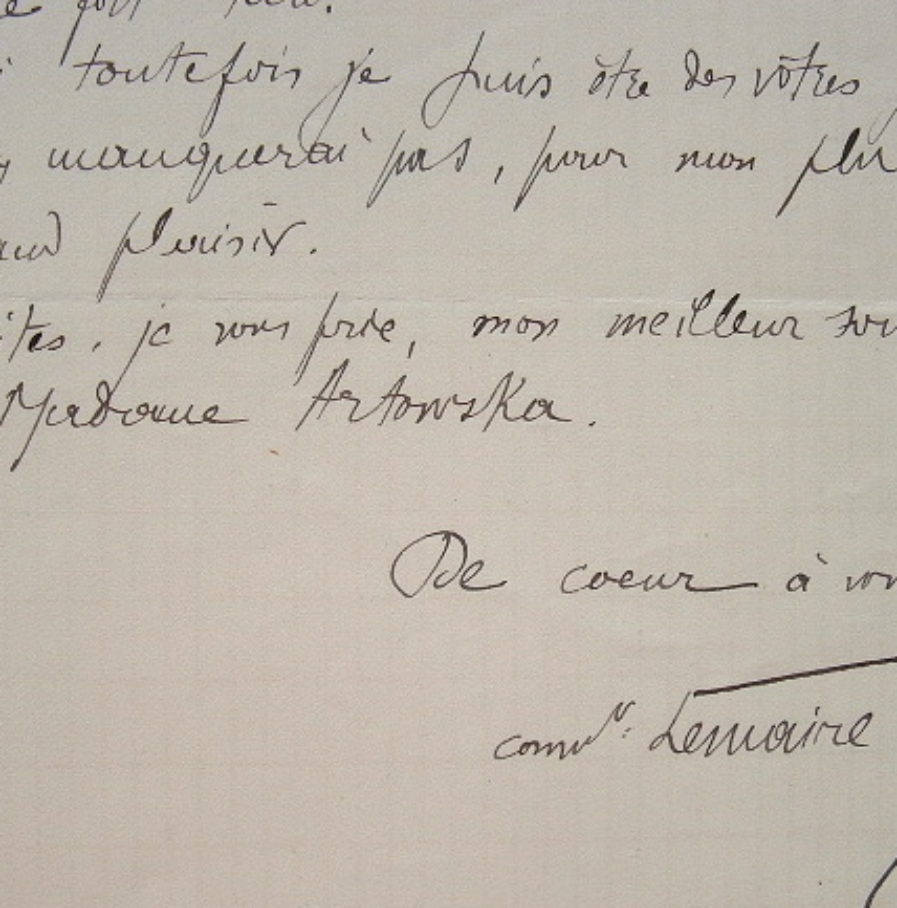 toutefois je puis être des vôtres
manquerai pas, pour mon plu
plaisir.
ites, je vous prie, mon meilleur sou
Madame Artowska.
De coeur à vou
Lemaire